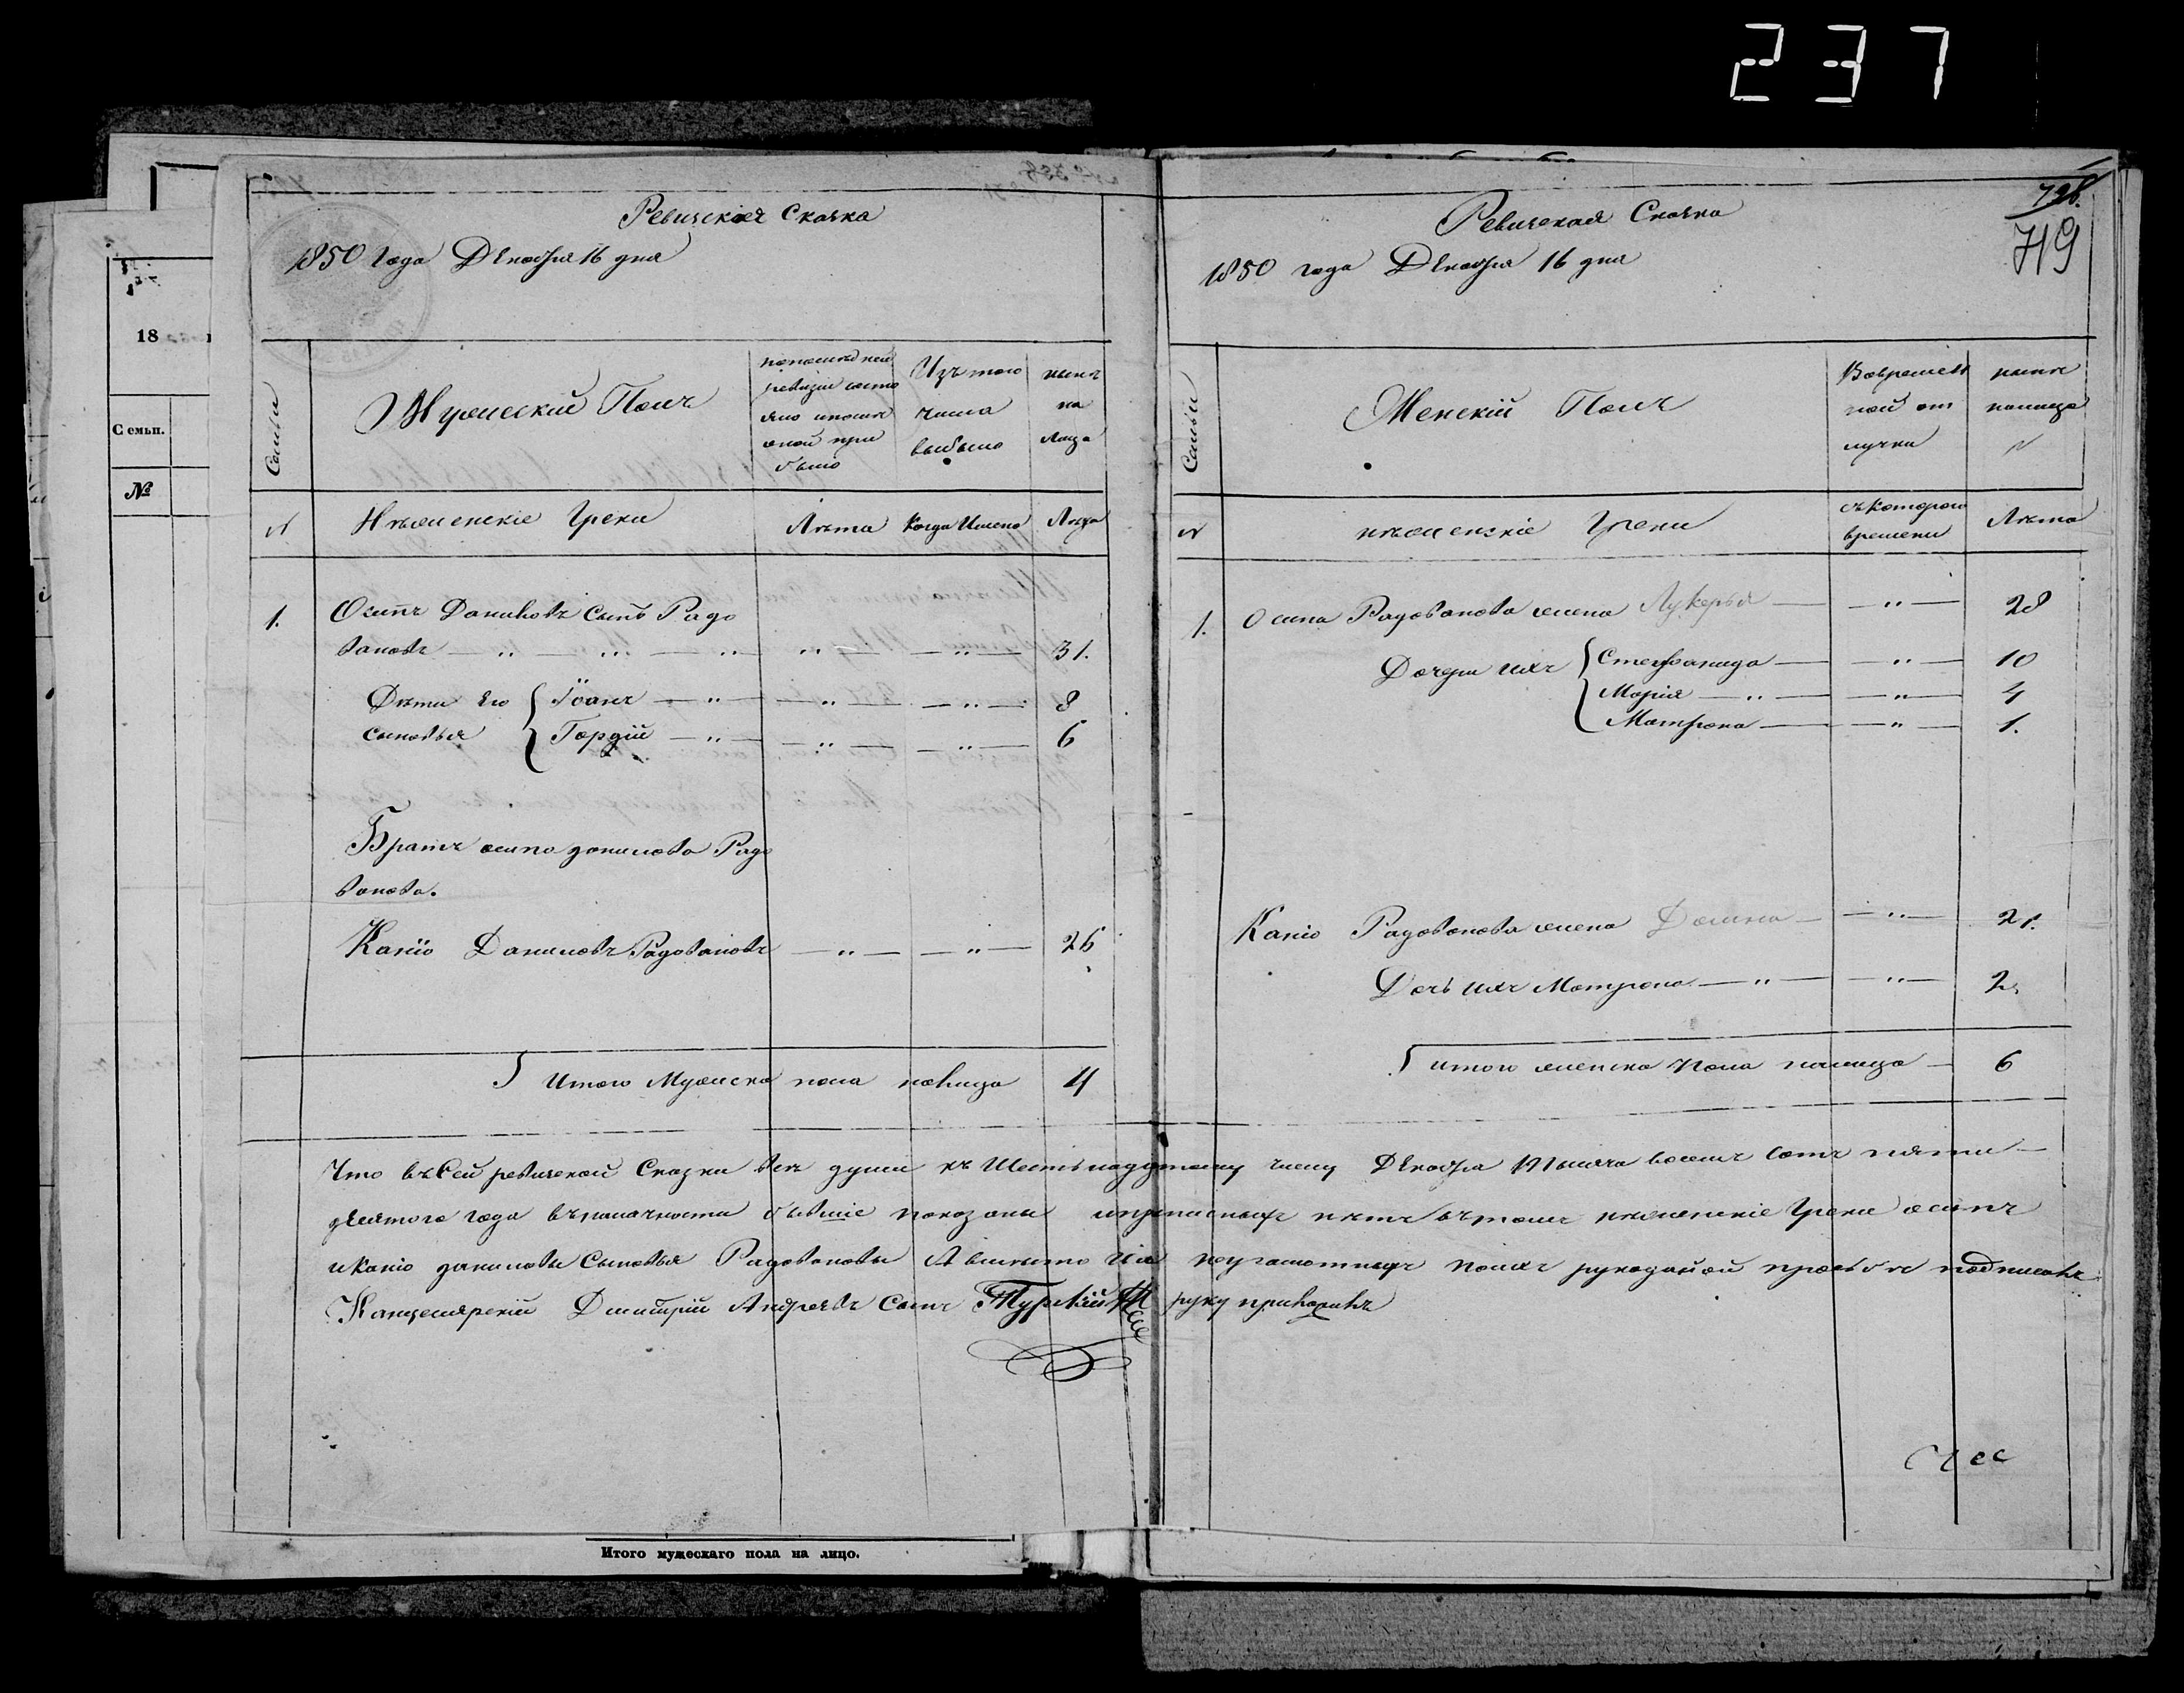 237
Ревизская Сказка
1850 года Декабря 16 дня
Семьи
Мужеский Полъ
попоследней
ревизіи состо
яло ипосле
оной при
было
Изътого
числа
выбыло
нынѣ
на
лицо
N
Нѣжинскіе Греки
Лѣта
Когда Имено
Лѣта
1. Осипъ Даниловъ Сынъ Радо
вановъ — " — " — " " — — " — 31.
Дѣти Его Іоанъ — " — — " — — " — 8
сыновья Гордій — " — — " — — " — 6
Братъ осипа данилова Радо
ванова.
Каніо Даниловъ Радовановъ — " — — " — 26
Итого Мужска пола налицо 4
Ревизская Сказка
1850 года Декабря 16 дня
728.
719
Семьи
Женскій Полъ
Вовремен
ной от
лучки
нынѣ
налицо
N
нѣжинскіе Греки
съкоторого
времени
Лѣта
1. Осипа Радованова жена Лукерья — — " — 28
Дочери ихъ Стефанида — — " — 10
Марія — " — — " — 4
Матрона — — " — 1.
Каніо Радованова жена — — " — 21.
Дочь ихъ Матрона — " — — " — 2.
итого женска пола налицо — 6
Что въСей ревизской Сказки всѣ души къ Шестьнадцатому числу Декабря Тысяча восемъ сотъ пяти—
десятого года вънали́чности бывшіе показаны ипрописныхъ нѣтъ вътомъ нѣжинскіе Греки осипъ
иКаніо даниловы Сыновья Радовановы Авместо ихъ неграмотныхъ поихъ рукоданой прозьбѣ подписалъ
Канцелярскій Дмитрій Андреевъ Сынъ руку приложилъ
18
Семьи.
№
Итого мужескаго пола на лицо.